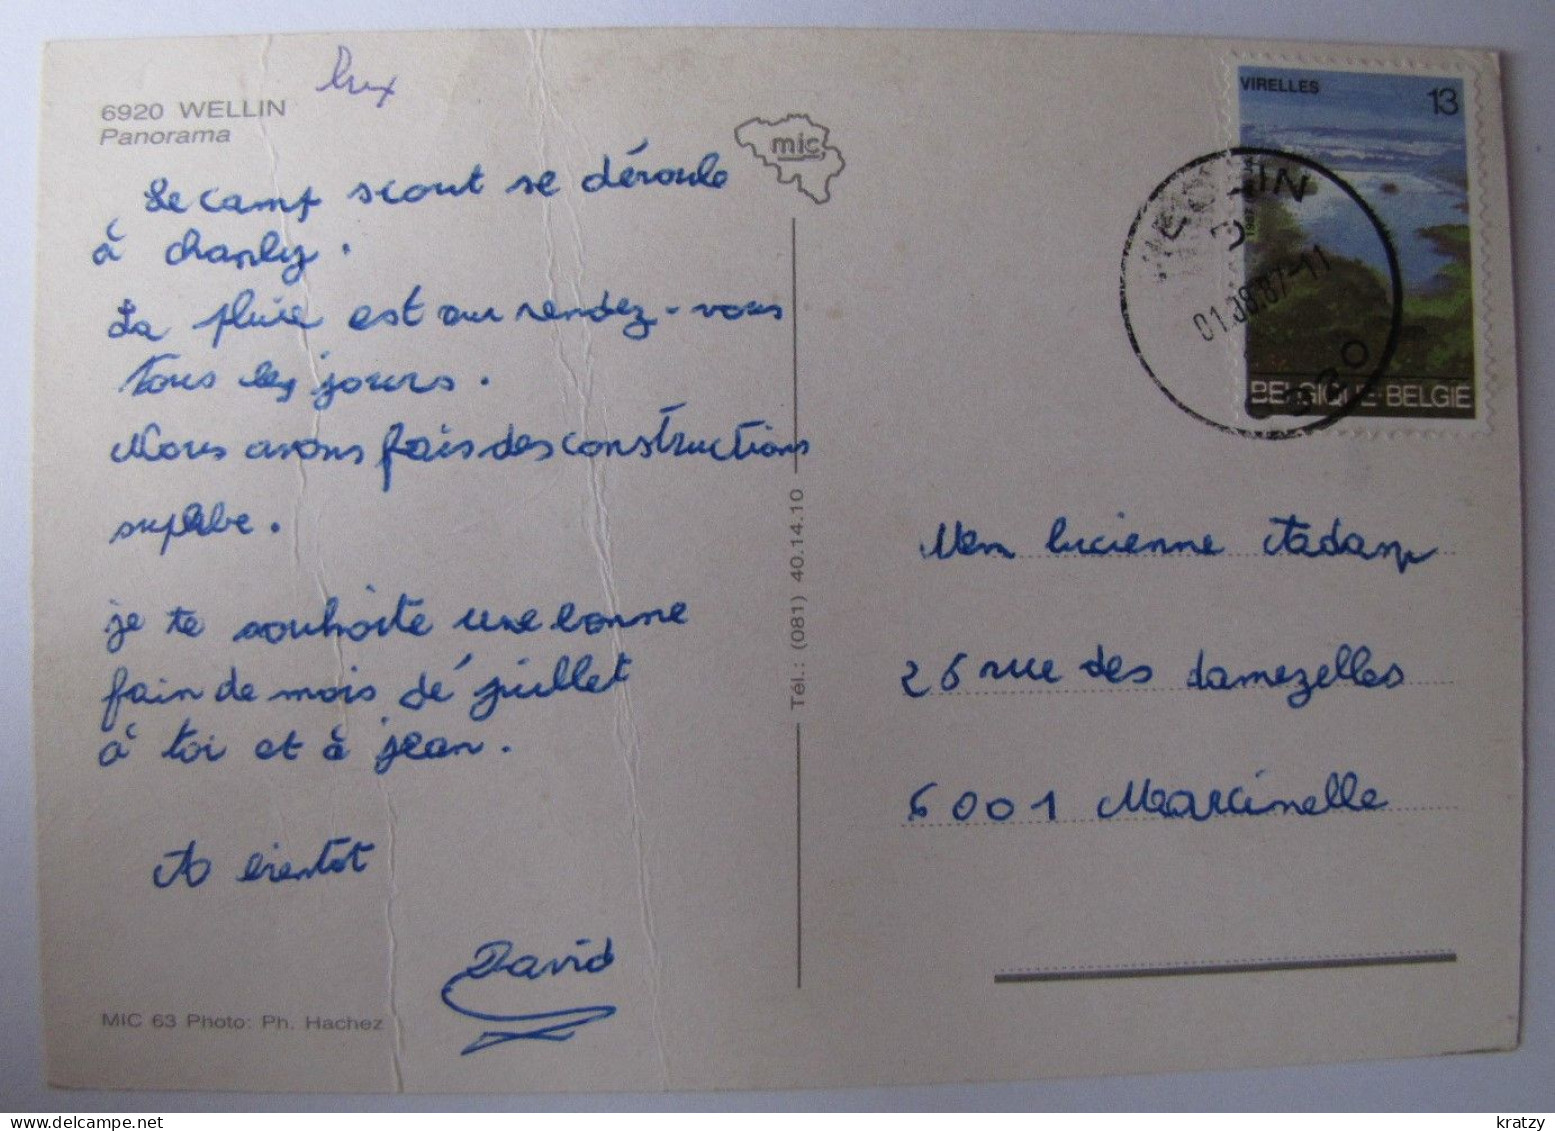 lux
6920 WELLIN
Panorama
Le camp scout se déroule
à chanly.
La pluie est au rendez-vous
tous les jours.
Nous avons fais des constructions
superbe.
je te souhaite une bonne
fain de mois dé juillet
à toi et à jean.
A bientot
David
MIC 63 Photo: Ph. Hachez
mic
Tél.: (081) 40.14.10
VIRELLES
13
01.08.87-11
6920
BELGIQUE-BELGIE
lucienne Adam
26 rue des damezelles
6001 Marcinelle
www.delcampe.net
kratzy